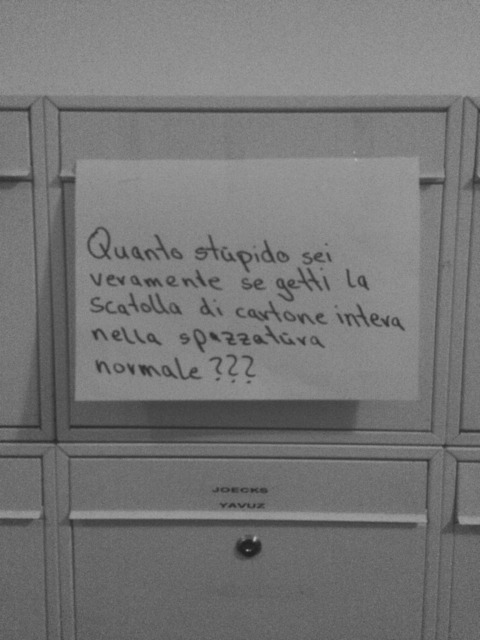 Quanto stúpido sei
veramente se getti la
scatolla di cartone intera
nella spazzatúra
normale ???
JOECKS
YAVUZ